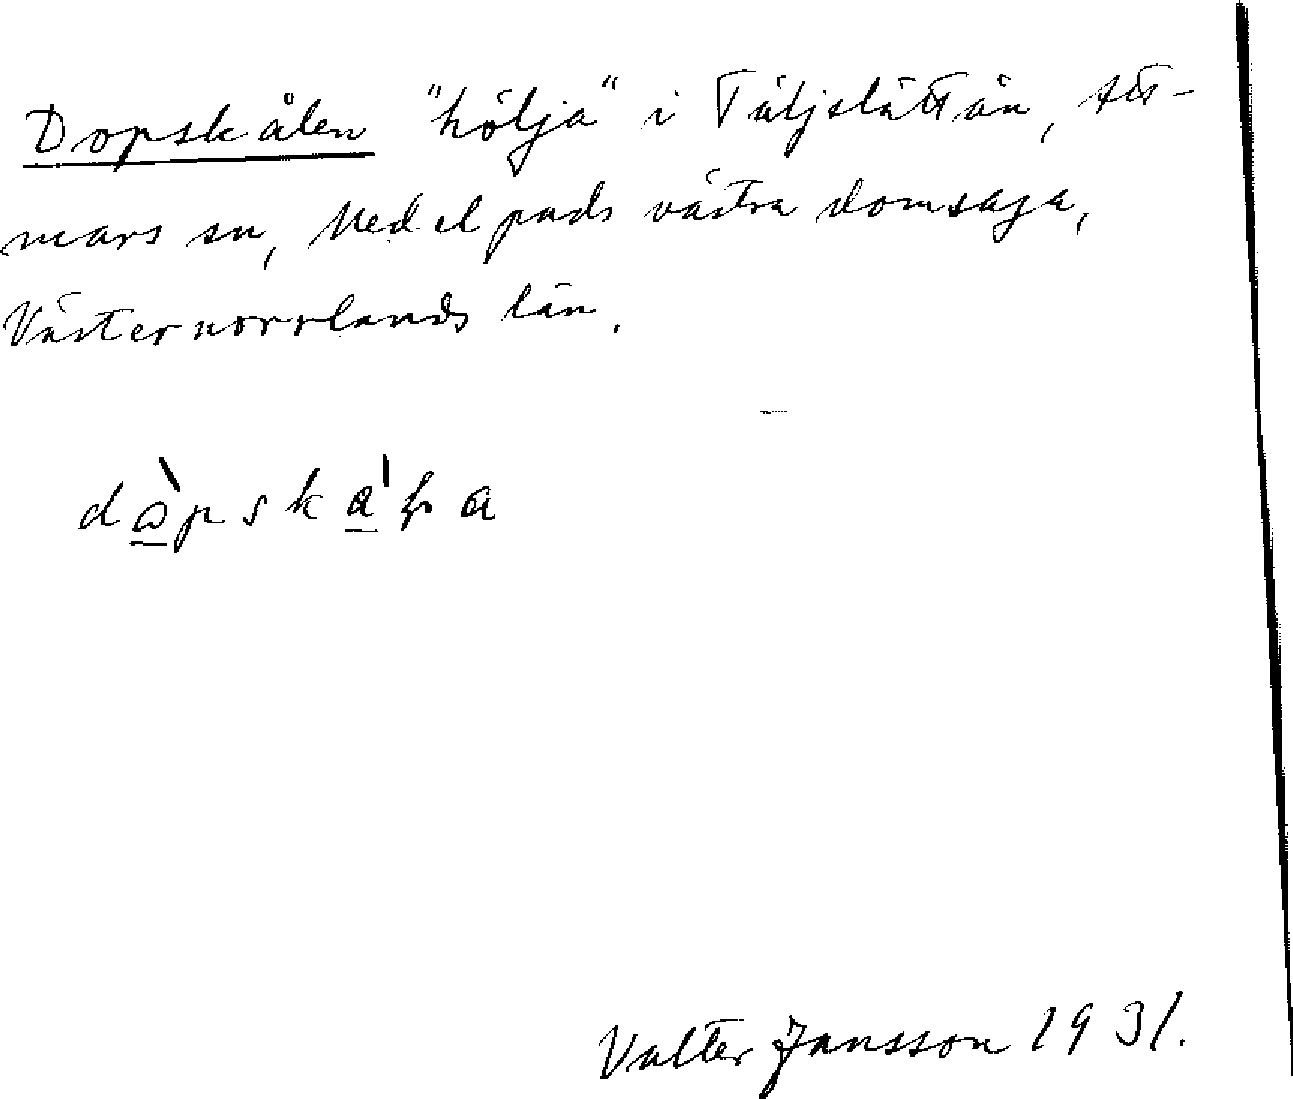 Dopskålen "hölja" i Täljslättån, Att-
mars sn, Medelpads västra domsaga,
Västernorrlands län.
Valter Jansson 1931.